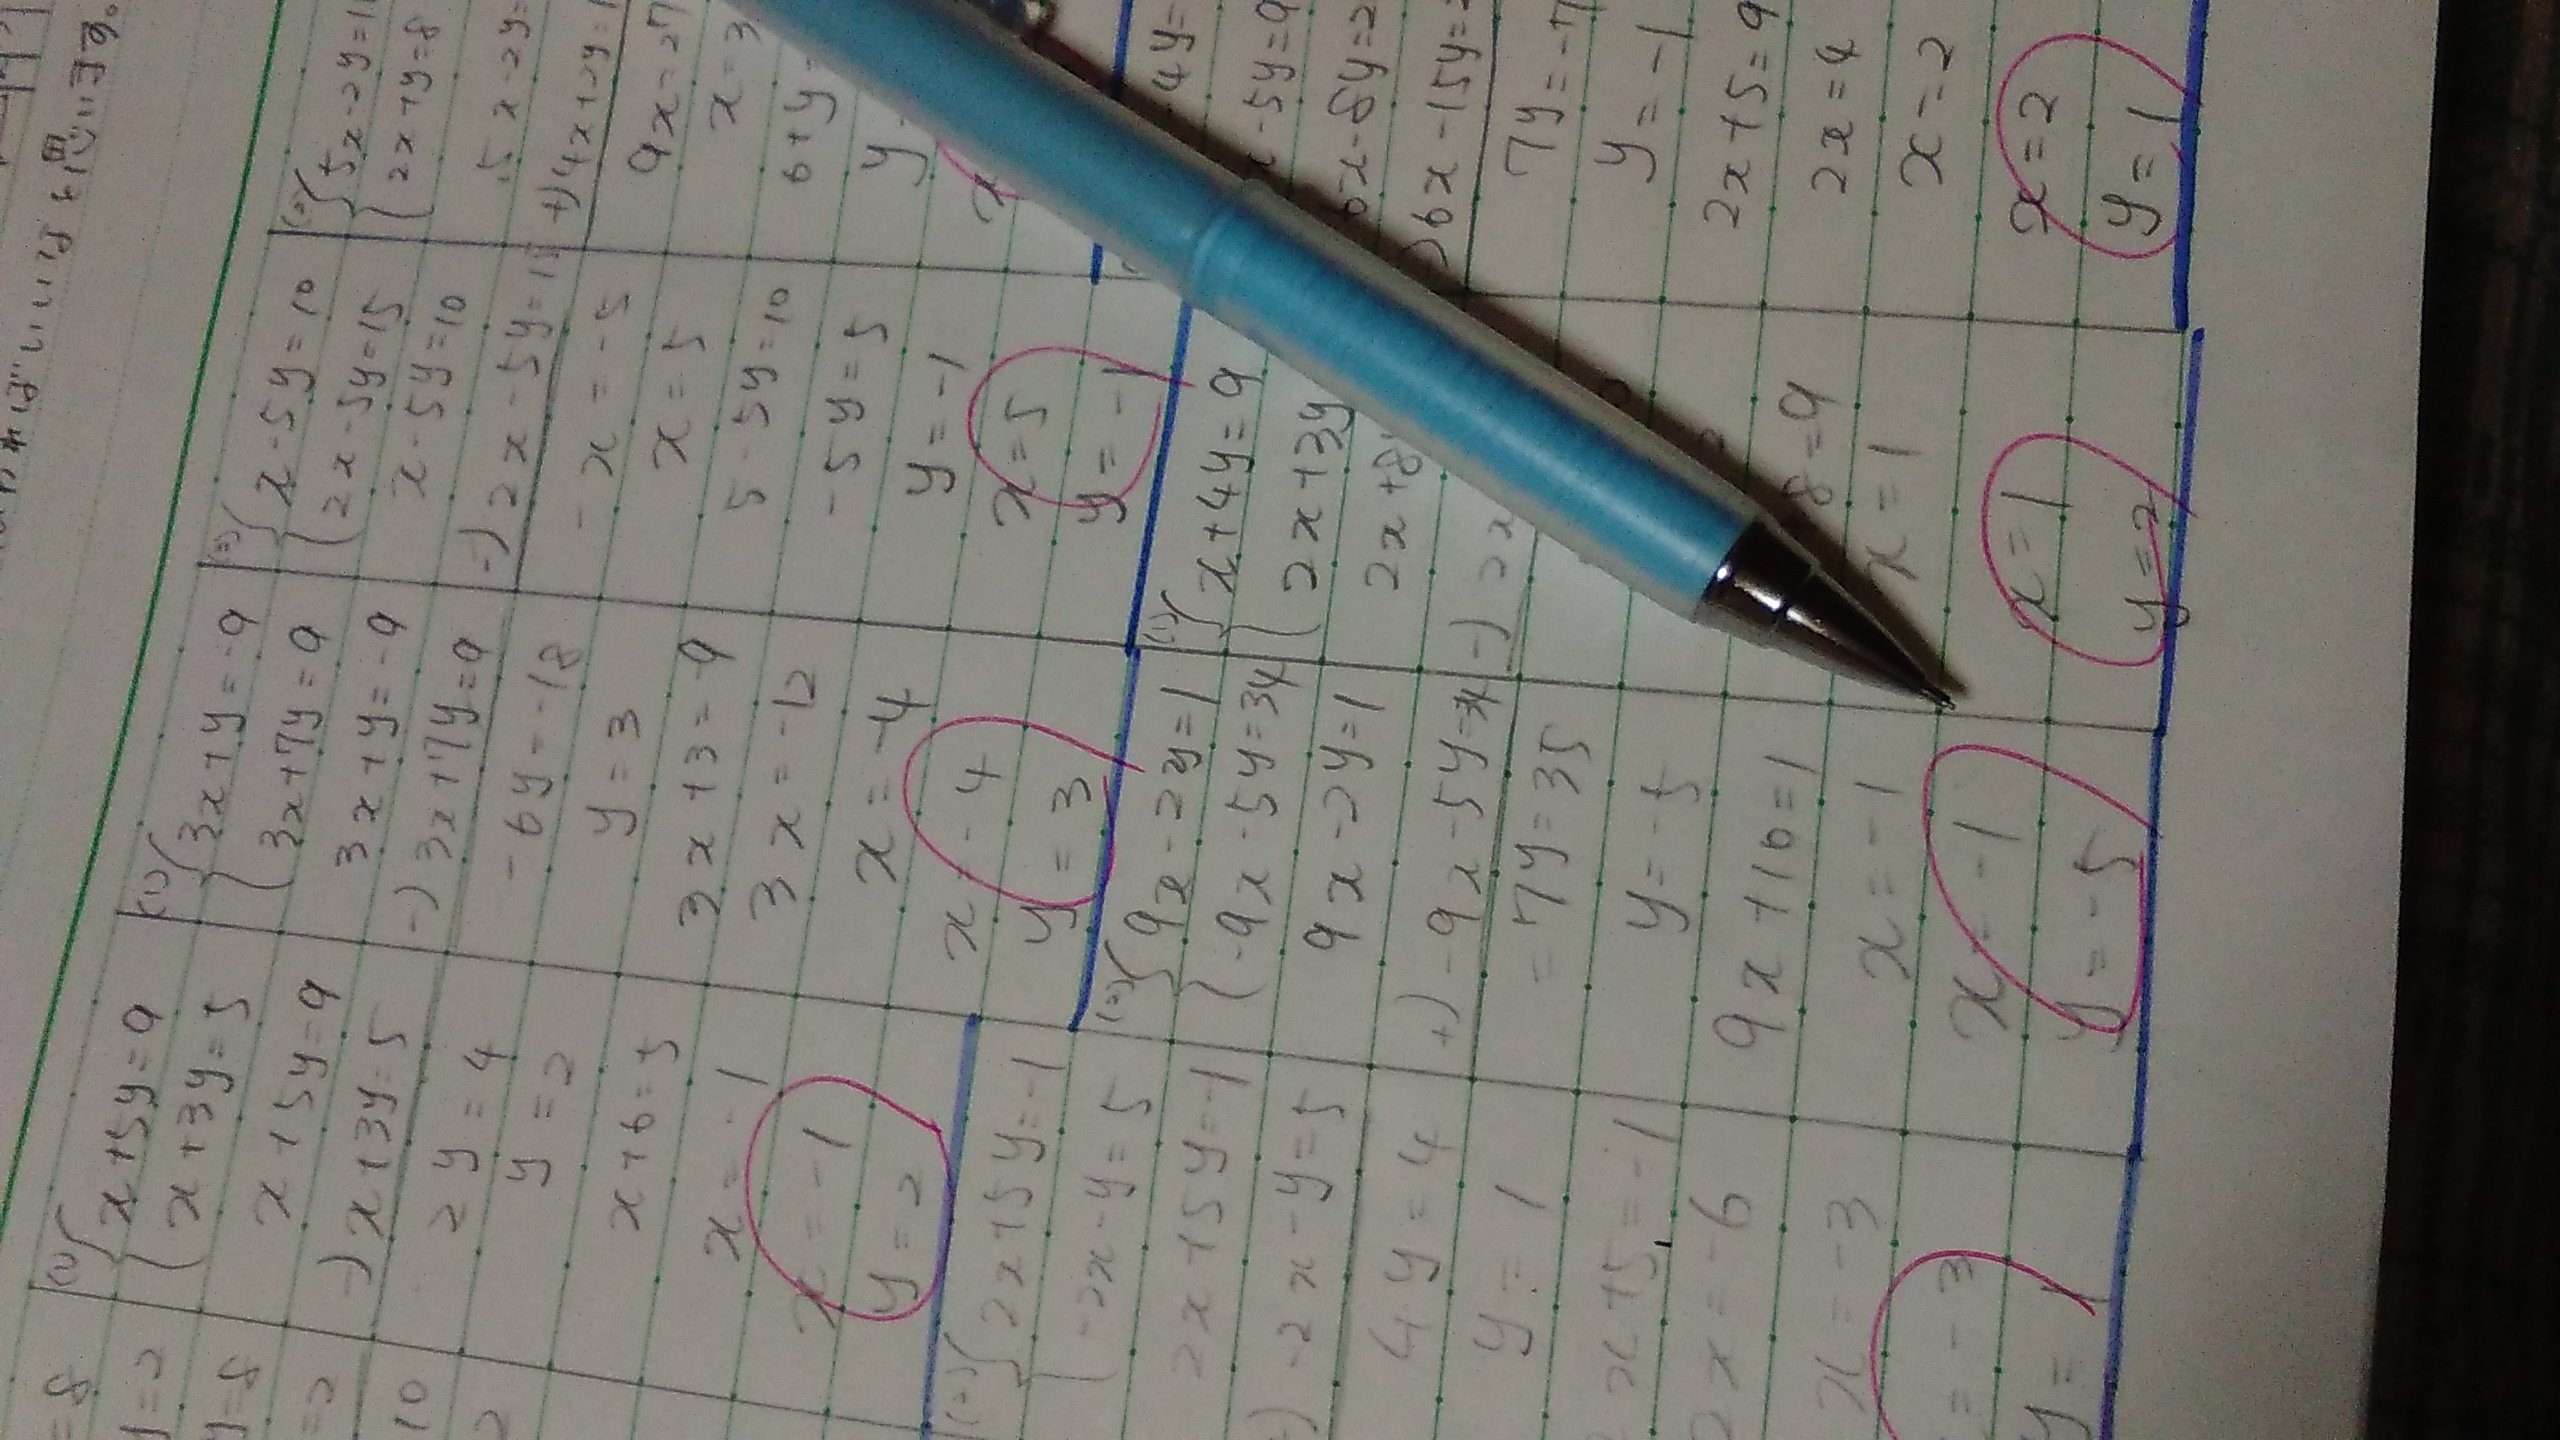 (1) x+5y=9
x+3y=5
x+5y=9
-) x+3y=5
2y=4
y=2
x+6=5
x=-1
x=-1
y=2
(1) 3x+y=-9
3x+7y=9
3x+y=-9
-) 3x+7y=9
-6y=-18
y=3
3x+3=-9
3x=-12
x=-4
x=-4
y=3
(2) x-5y=10
2x-5y=15
x-5y=10
-) 2x-5y=15
-x=-5
x=5
5-5y=10
-5y=5
y=-1
x=5
y=-1
(2) 5x-2y=1
2x+y=8
5x-2y=
+) 4x+2y=1
9x=27
x=3
6+y=
y=
x
(2) 2x+5y=-1
-2x-y=5
2x+5y=-1
+) -2x-y=5
4y=4
y=1
x+5=-1
2x=-6
x=-3
=-3
y=1
(2) 9x-2y=1
-9x-5y=34
9x-2y=1
+) -9x-5y=34
-7y=35
y=-5
9x+10=1
x=-1
x=-1
y=-5
(1) x+4y=9
2x+3y
2x+8
-) 2x
8=9
x=1
x=1
y=2
4y=
x-5y=9
6x-8y=2
6x-15y=
7y=-7
y=-1
2x+5=9
2x=4
x=2
x=2
y=1
=8
y=2
y=8
=2
10
2